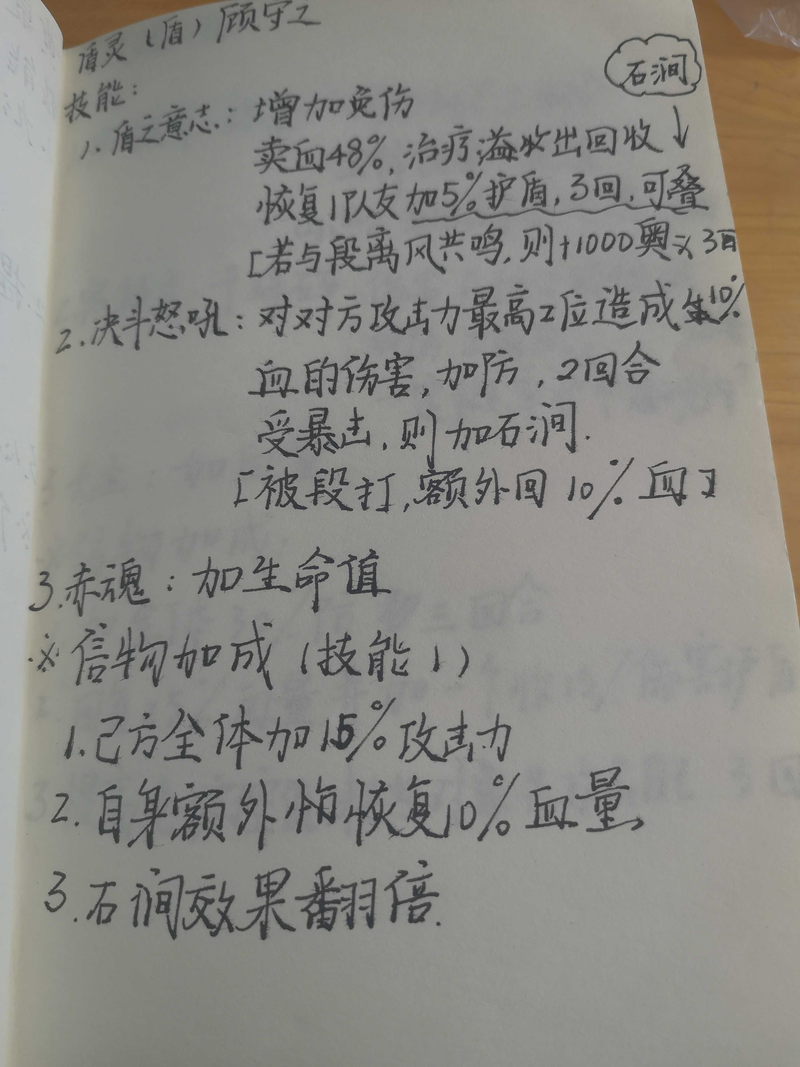 盾灵（盾）顾守之
石涧
技能：
1、盾之意志：增加免伤
卖血48%，治疗溢出回收
恢复1队友加5%护盾，3回，可叠
[若与段离风共鸣，则+1000奥义3回
2、决斗怒吼：对对方攻击力最高2位造成10%
血的伤害，加防，2回合
受暴击，则加石涧.
[被段打，额外回10%血]
3.赤魂：加生命值
※信物加成（技能1）
1.己方全体加15%攻击力
2.自身额外恢复10%血量
3.石涧效果翻倍.